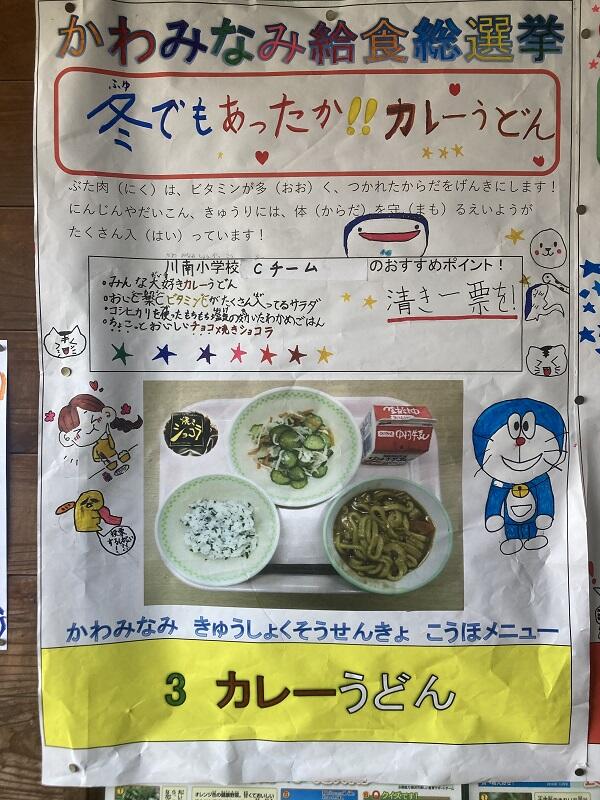 かわみなみ給食総選挙
ふゆ
冬でもあったか!! カレーうどん
ぶた肉（にく）は、ビタミンが多（おお）く、つかれたからだをげんきにします！
にんじんやだいこん、きゅうりには、体（からだ）を守（まも）るえいようが
たくさん入（はい）っています！
川南小学校 Cチーム のおすすめポイント！
・みんな大好きカレーうどん
ビタミンCがたくさん入ってるサラダ
・コシヒカリを使ったもちもち
わかめごはん
・ちょこっとおいしいチョコ焼きショコラ
清き一票を!
焼き
ショコラ
かわみなみ きゅうしょくそうせんきょ こうほメニュー
3 カレーうどん